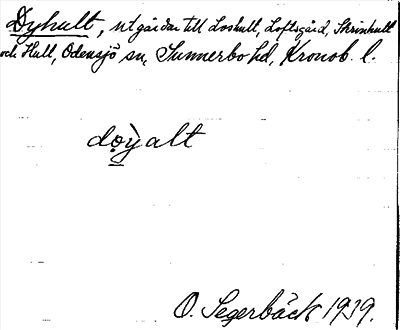 Dyhult, utgårdar till Loshult, Loftsgård, Skrishult
och Hult, Odensjö sn, Sunnerbo hd, Kronob. l.
do̤ỳalt
O. Segerbäck 1939.